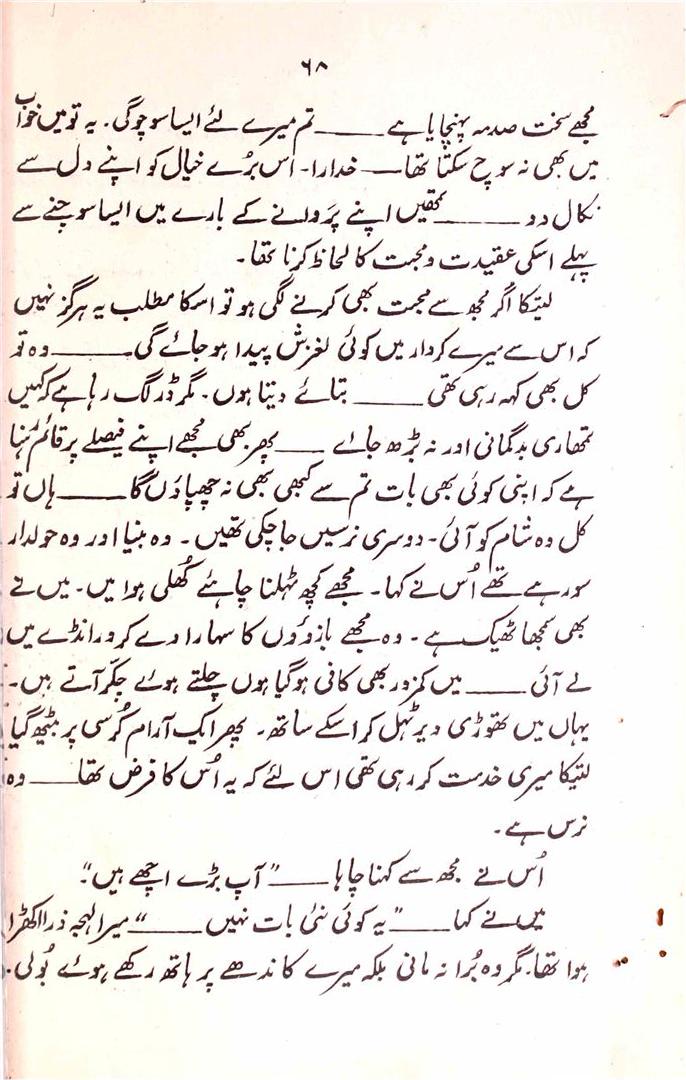 ۶۸
مجھے سخت صدمہ پہنچایا ہے ـــــ تم میرے لئے ایسا سوچوگی۔ یہ تو میں خواب
میں بھی نہ سوچ سکتا تھا ـــــ خدارا۔ اس بُرے خیال کو اپنے دل سے
نکال دو ـــــ تمھیں اپنے پروانے کے بارے میں ایسا سوچنے سے
پہلے اسکی عقیدت و محبت کا لحاظ کرنا تھا۔
لتیکا اگر مجھ سے محبت بھی کرنے لگی ہو تو اسکا مطلب یہ ہرگز نہیں
کہ اس سے میرے کردار میں کوئی لغزش پیدا ہو جائے گی۔ ـــــ وہ تو
کل بھی کہہ رہی تھی ـــــ بتائے دیتا ہوں۔ مگر ڈر لگ رہا ہے کہیں
تمھاری بدگمانی اور نہ بڑھ جائے ـــــ پھر بھی مجھے اپنے فیصلے پر قائم رہنا
ہے کہ اپنی کوئی بھی بات تم سے کبھی بھی نہ چھپاؤں گا ـــــ ہاں تو
کل وہ شام کو آئی۔ دوسری نرسیں جا چکی تھیں۔ وہ بنیا اور وہ حولدار
سو رہے تھے اُس نے کہا۔ مجھے کچھ ٹہلنا چاہئے کُھلی ہوا میں۔ میں نے
بھی سمجھا ٹھیک ہے۔ وہ مجھے بازوؤں کا سہارا دے کر ورانڈے میں
لے آئی ـــــ میں کمزور بھی کافی ہوگیا ہوں چلتے ہوئے چکّر آتے ہیں۔
یہاں میں تھوڑی دیر ٹہل کر اسکے ساتھ۔ پھر ایک آرام کُرسی پر بیٹھ گیا
لتیکا میری خدمت کر رہی تھی اس لئے کہ یہ اُس کا فرض تھا ـــــ وہ
نرس ہے۔
اُس نے مجھ سے کہنا چاہا ـــــ "آپ بڑے اچھے ہیں"۔
میں نے کہا ـــــ "یہ کوئی نئی بات نہیں ـــــ" میرا لہجہ ذرا اکھڑا
ہوا تھا۔ مگر وہ بُرا نہ مانی بلکہ میرے کاندھے پر ہاتھ رکھے ہوئے بُولی۔